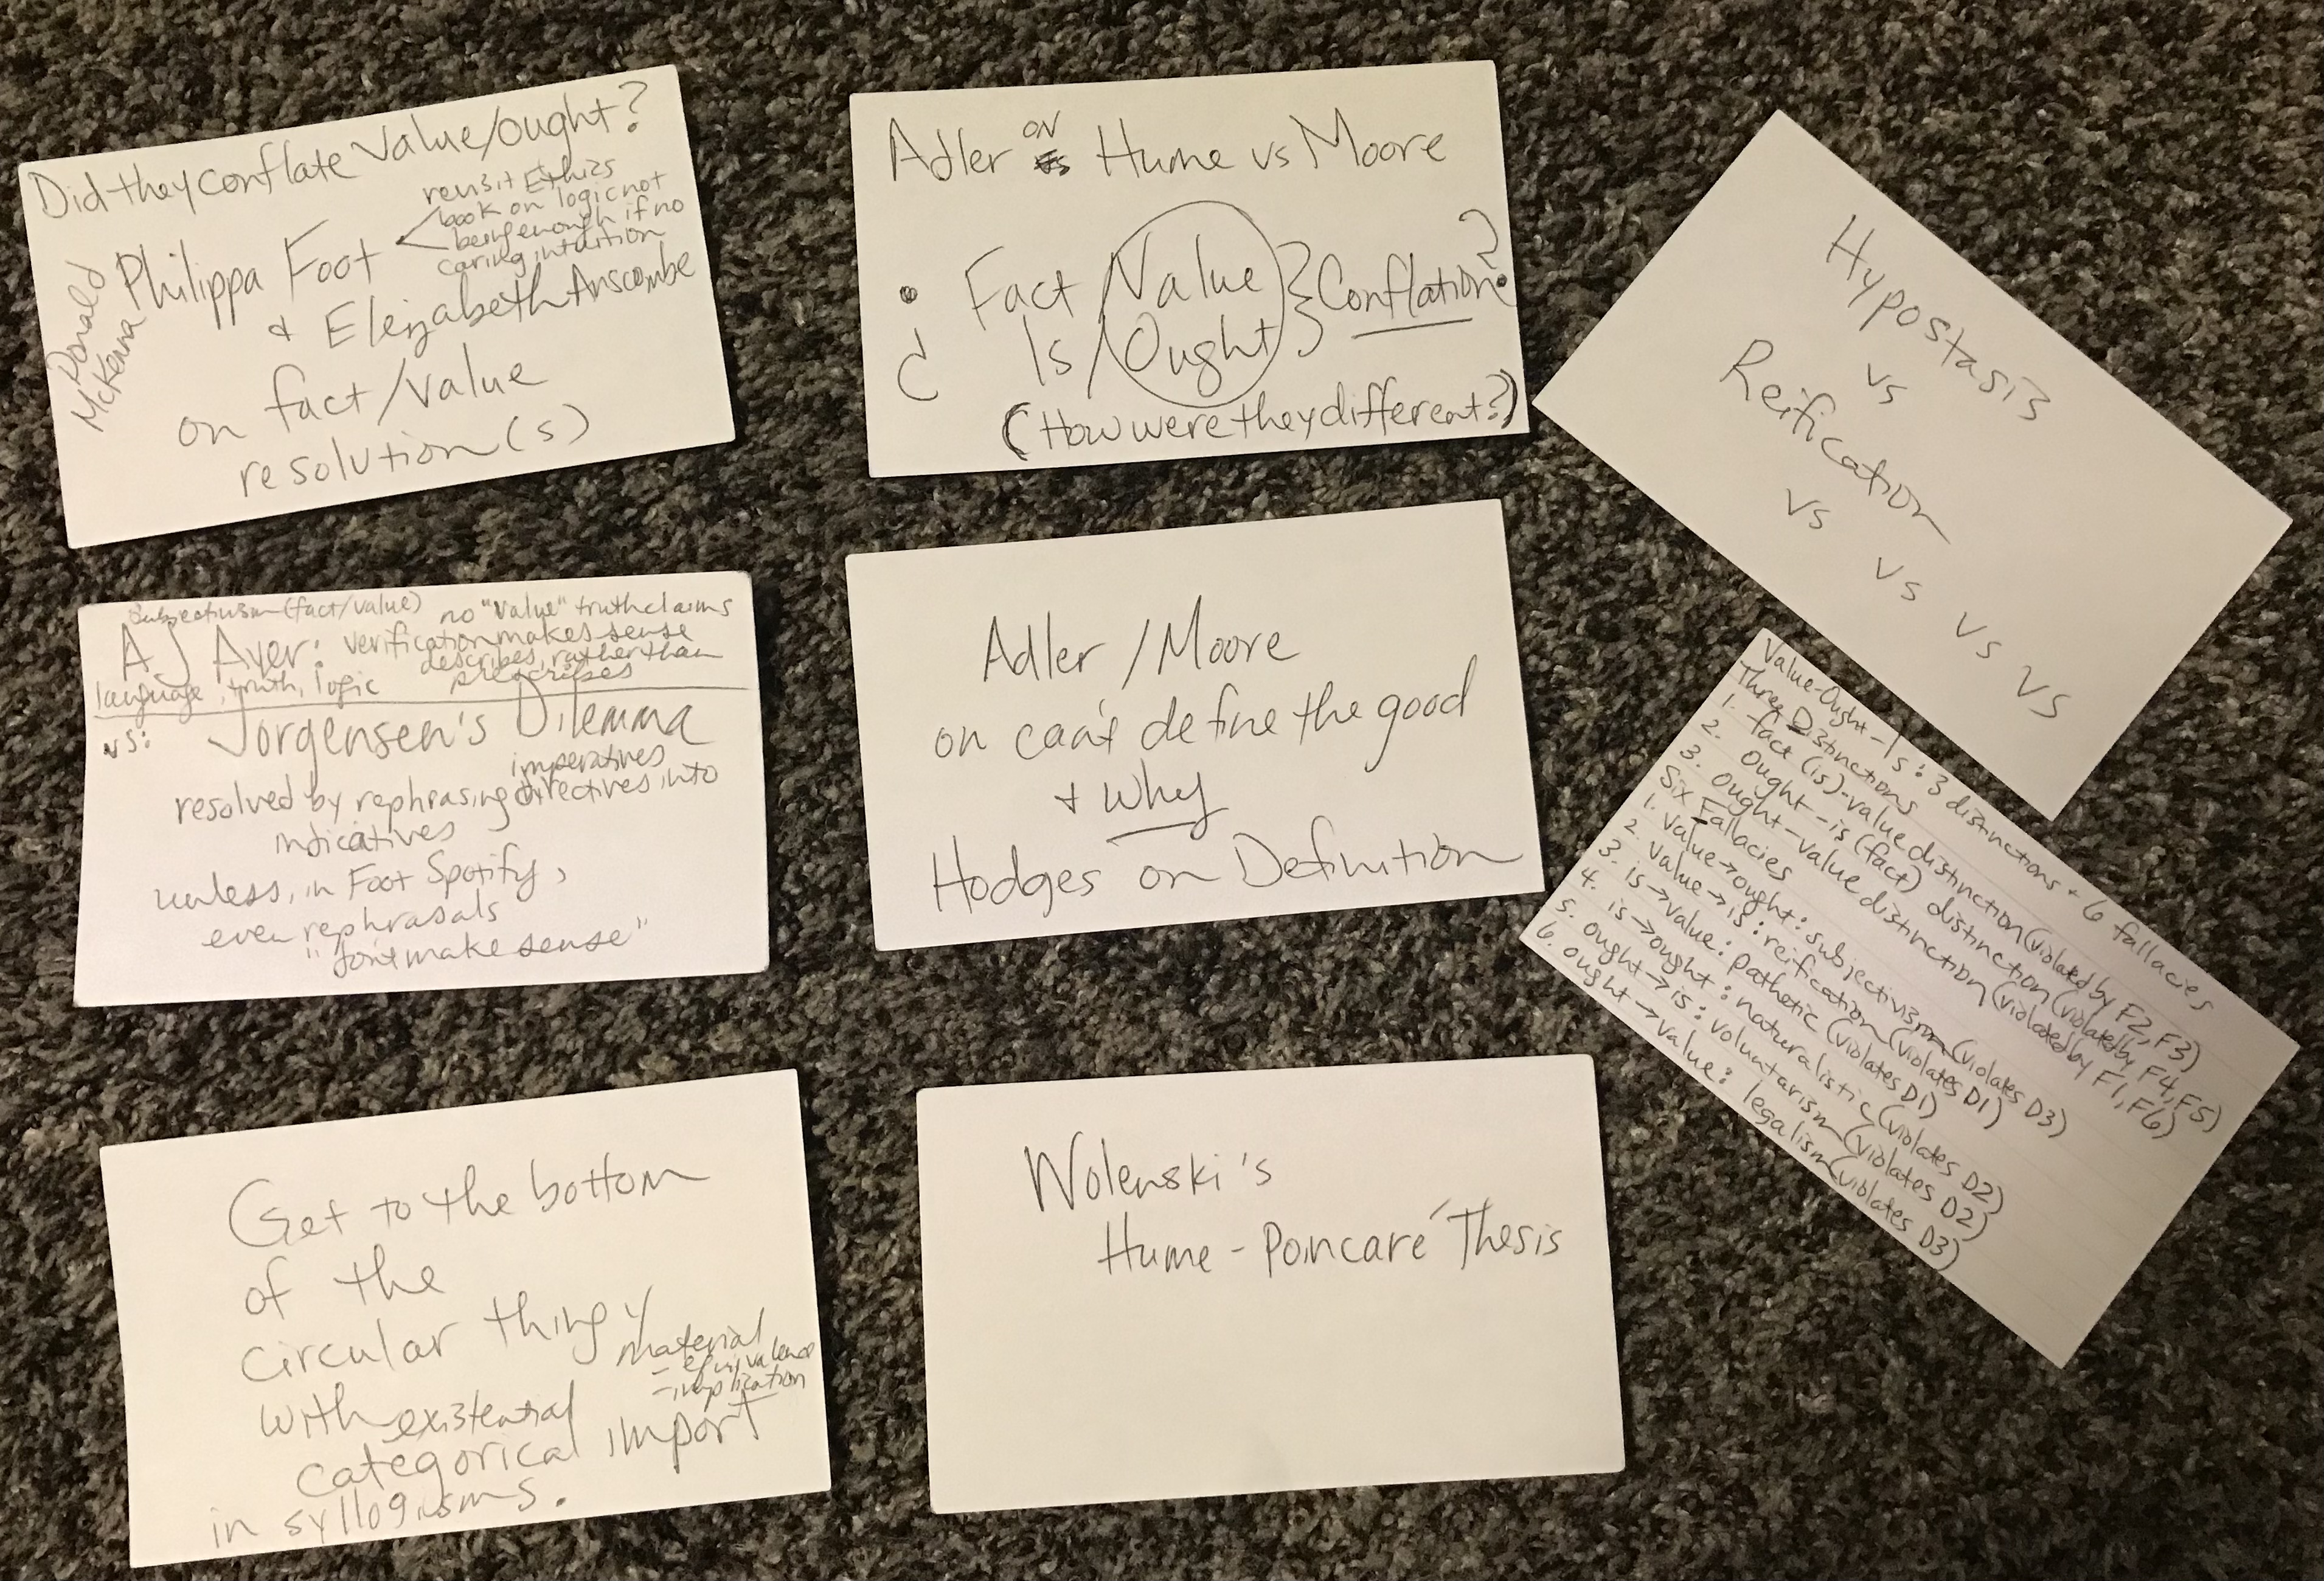 Did they conflate Value/Ought?
Philippa Foot
revisit Ethics
book on logic not
being enough if no
caring intuition
& Elizabeth Anscombe
on fact/value
resolution(s)
Donald
McKenna
Adler on vs Hume vs Moore
Fact/Value
Is/Ought
Conflation?
¿
(How were they different?)
Hypostasis
vs
Reification
vs
vs
vs
vs
Subjectivism (fact/value) no "value" truth claims
AJ Ayer: verification makes sense
describes, rather than
language, truth, logic prescribes
vs: Jorgensen's Dilemma
imperatives
resolved by rephrasing directives into
indicatives
unless, in Foot Spotify,
even rephrasals
"don't make sense"
Adler/Moore
on can't define the good
+ Why
Hodges on Definition
Value-Ought-Is: 3 distinctions + 6 fallacies
Three Distinctions
1. fact (is)-value distinction (violated by F2, F3)
2. ought-is (fact) distinction (violated by F4, F5)
3. ought-value distinction (violated by F1, F6)
Six Fallacies
1. value→ought: subjectivism (violates D3)
2. value→is: reification (violates D1)
3. is→value: pathetic (violates D1)
4. is→ought: naturalistic (violates D2)
5. ought→is: voluntarism (violates D2)
6. ought→value: legalism (violates D3)
Get to the bottom
of the
circular thingy
material
- equivalence
- implication
with existential
categorical import
in syllogisms.
Wolenski's
Hume-Poincaré Thesis